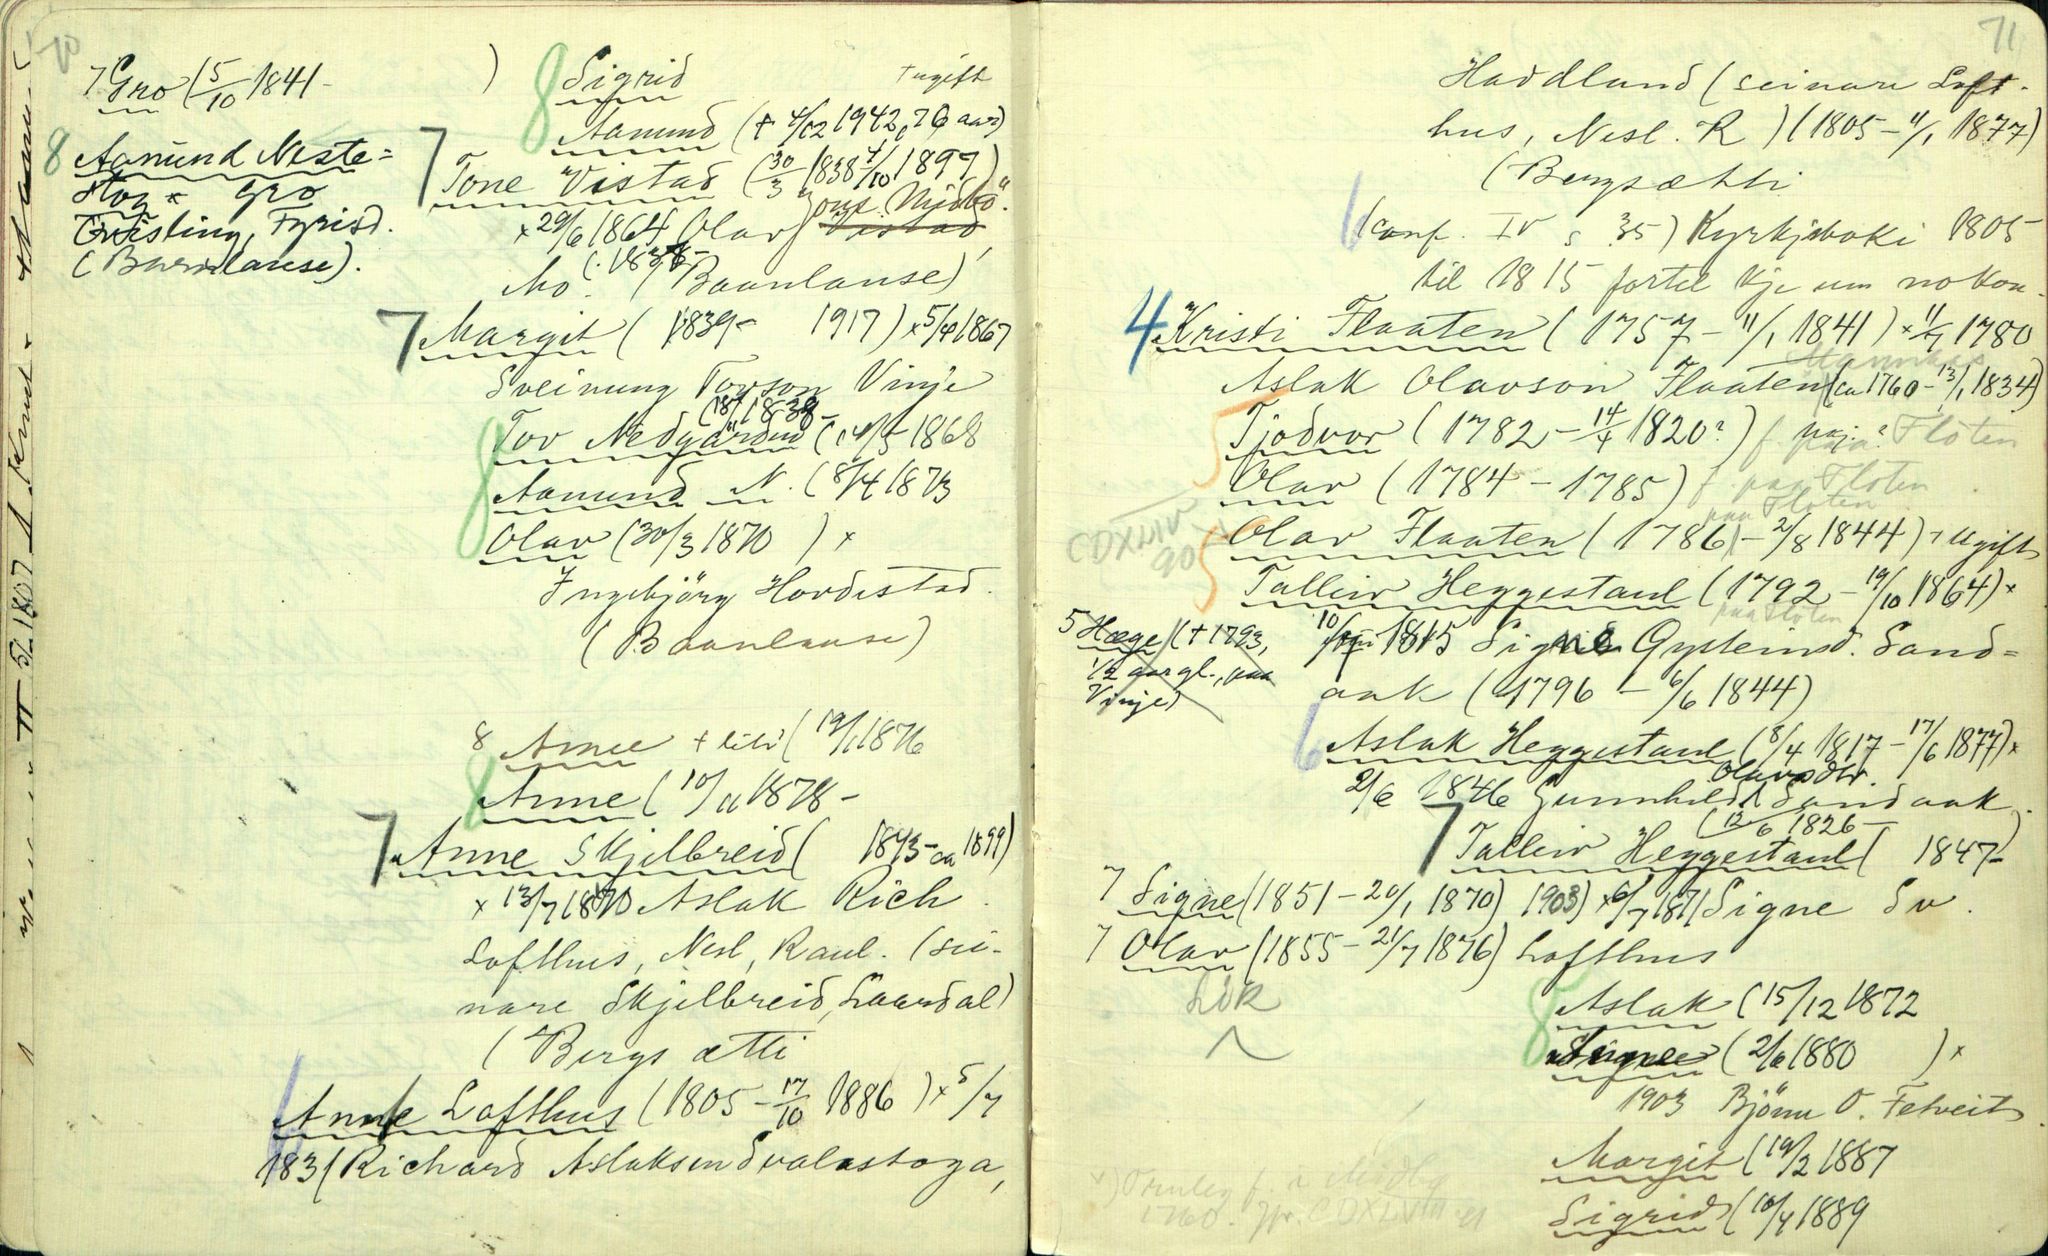 70
7 Gro (5/10 1841 - )
8 Aamund Neste=
stog × Gro
Kvisling, Fyrisd.
(Barnlause).
8 Sigrid + ugift
Aamund (+ 4/12 1942, 76 aar)
7 Tone Vistad (30/3 1838 4/10 1897)
× 29/6 1864 Olav Jons. Mjobö.
Mo. (Baanlause)
7 Margit (1839 - 1917) × 5/4 1867
Sveinung Torson Vinje
(18/1 1838 -
8 Tov Nedgarden ( 1868
Aamund N. (8/4 1873
Olav (30/3 1870 ) ×
Ingebjörg Hordestad.
(Baanlause)
8 Anne + liti (19/1 1876
8 Anne (10/11 1878 -
7 Anne Skjelbreid ( 1843 - ca 1899)
× 13/7 1870 Aslak Rich.
Lofthus, Nesl, Raul. (sei-
nare Skjelbreid, Laardal)
(Bergsætti
6 Anne Lofthus (1805 - 17/10 1886) × 5/7
1831 Richard Aslakson Dvalastoga,
71
Haddland (seinare Loft-
hus, Nesl. R) (1805 - 4/1 1877)
(Bergsætti
6 (conf. IV s 35) Kyrkjeboki 1805
til 1815 fortel kje um nokon
4 Kristi Flaaten (1757 - 11/1 1841) × 11/7 1780
Aslak Olavson Flaaten (ca 1760 - 13/1 1834)
5 Tjodvor (1782 - 14/4 1820?) f. paa Floten
Olav (1784 - 1785) f. paa Floten
paa Floten
CDXLIV
90
5 Olav Flaaten (1786 - 2/8 1844) + Ugift
Talleiv Heggestaul (1792 - 19/10 1864) ×
paa Floten
5 Hæge (+ 1793,
1/2 aar gl., paa
Vinje)
10/ 1815 Signe Gystensd. Sand=
aak (1796 - 6/6 1844)
6 Aslak Heggestaul (8/4 1817 - 17/6 1877) ×
2/6 1846 Gunnhild Olavsdtr. Sandaak.
(12/6 1826 -
7 Talleiv Heggestaul ( 1847 -
7 Signe (1851 - 20/1 1870) 1903) × 6/7 1871 Signe Sv.
7 Olav (1855 - 21/7 1876) Lofthus
8 Aslak (15/12 1872
Signe (2/6 1880 ) ×
1903 Björn O. Felveit
Margit (19/2 1887
Sigrid (10/4 1889